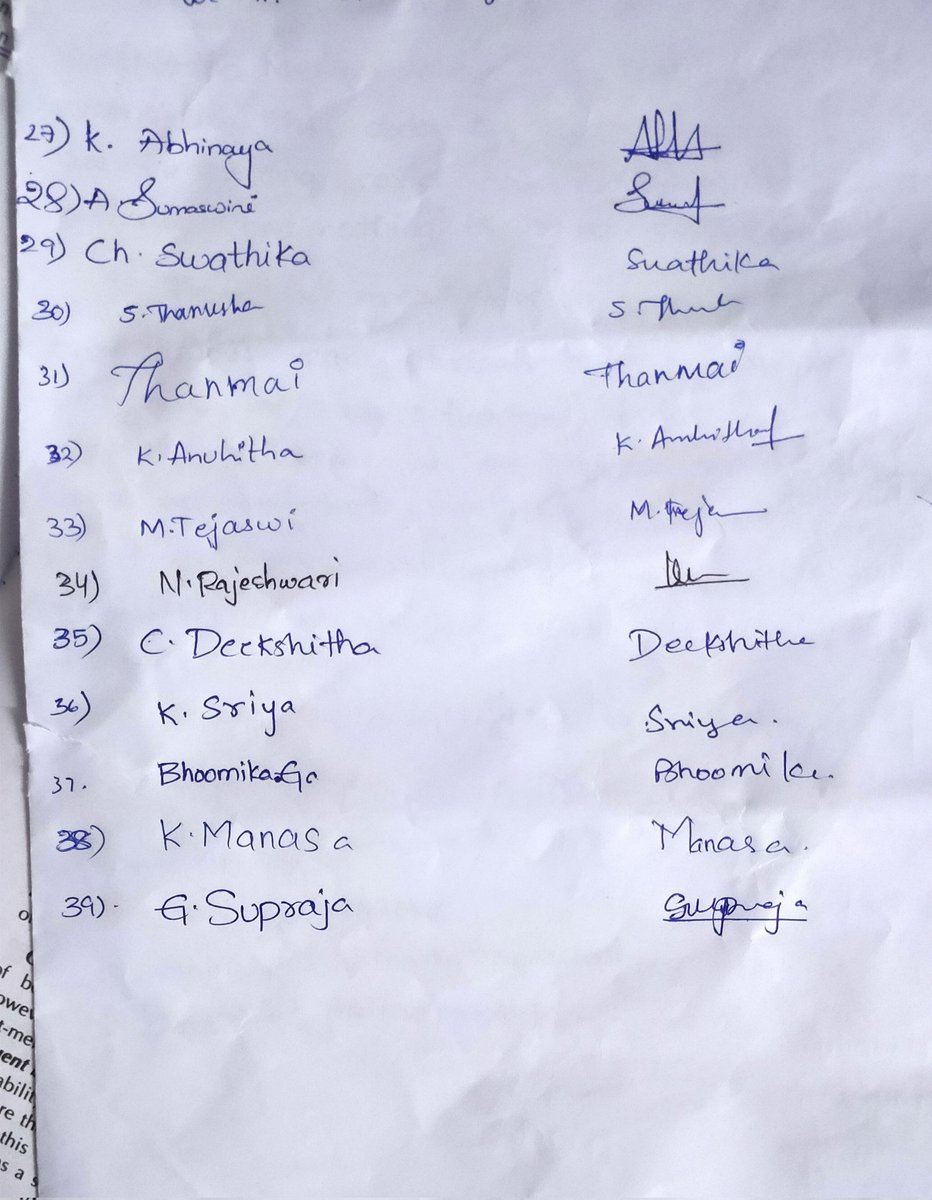 27) K. Abhinaya
28) A Sumaswini
29) Ch. Swathika Swathika
30) S. Thanusha
31) Thanmai Thanmai
32) K. Anuhitha
33) M. Tejaswi M. Teja
34) N. Rajeshwari
35) C. Deekshitha Deekshitha
36) K. Sriya Sriya.
37. Bhoomika.G. Bhoomika.
38) K. Manasa Manasa.
39). G. Supraja Supraja